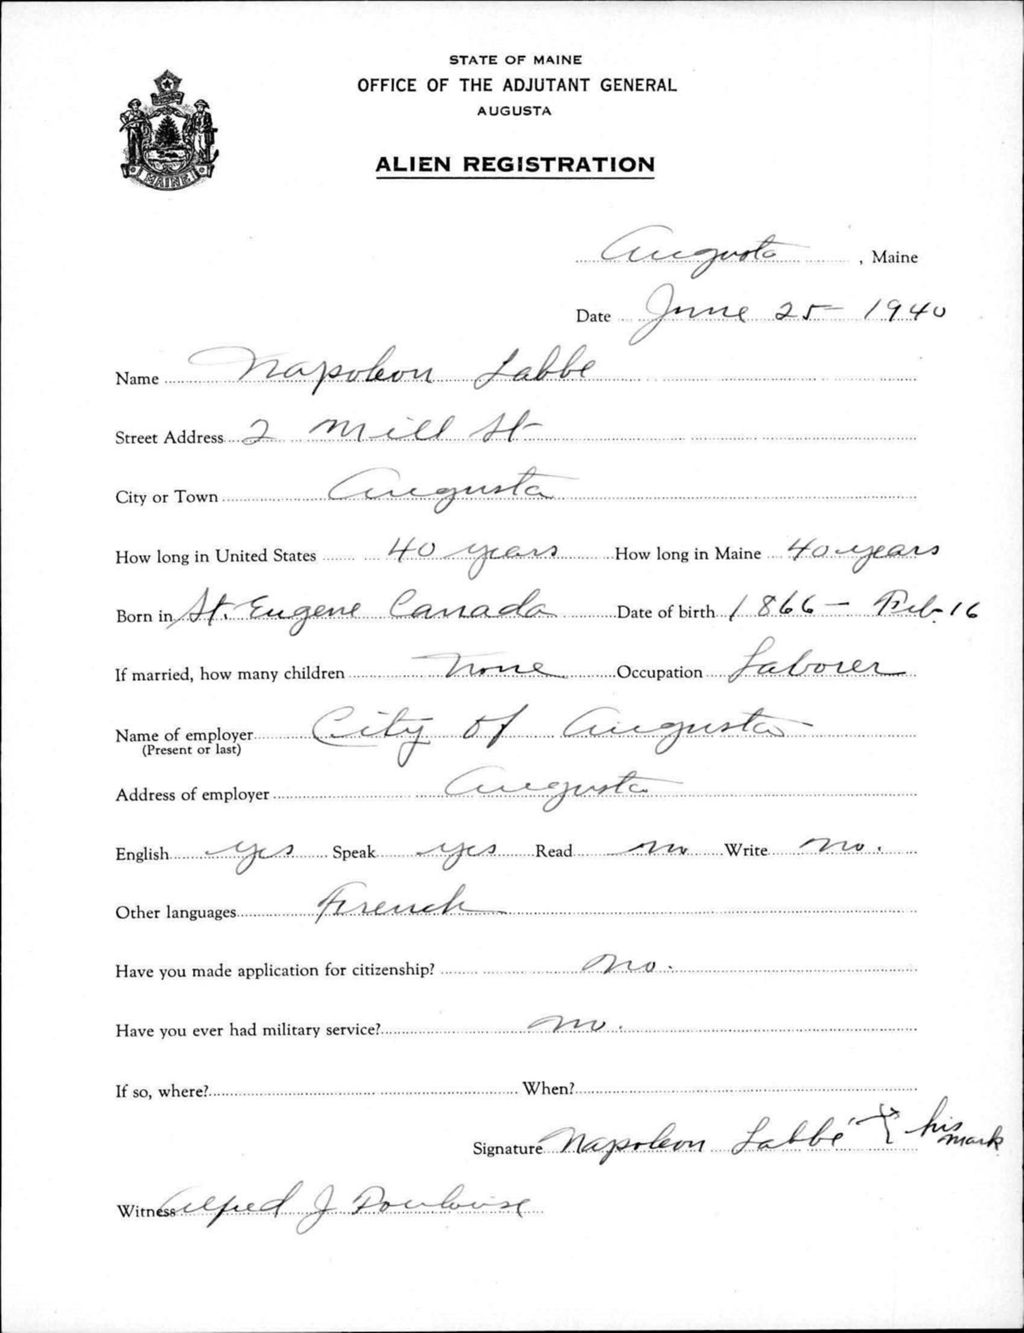 STATE OF MAINE
OFFICE OF THE ADJUTANT GENERAL
AUGUSTA
ALIEN REGISTRATION
MAINE
Augusta, Maine
Date June 25 - 1940
Name Napoleon Labbe
Street Address 2 Mill St
City or Town Augusta
How long in United States 40 years How long in Maine 40 years
Born in St. Eugene Canada Date of birth 1866 - Feb. 16
If married, how many children None Occupation Laborer
Name of employer City of Augusta
(Present or last)
Address of employer Augusta
English yes Speak yes Read no Write no.
Other languages French
Have you made application for citizenship? no.
Have you ever had military service? no.
If so, where? When?
Signature Napoleon Labbé X his mark
Witness Alfred J Toulouse